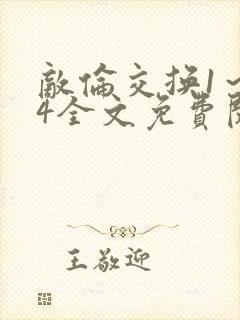 敵倫交换1~
4全文免費閱
王敬迎